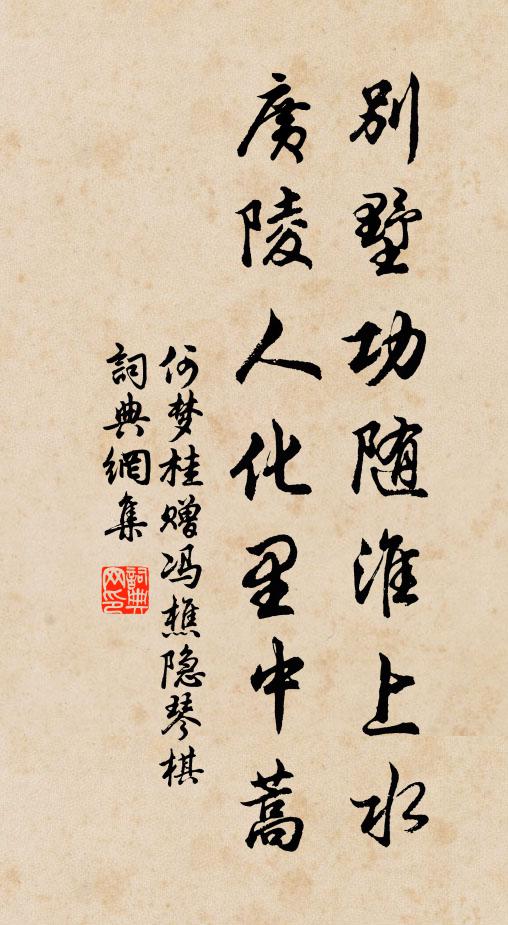 別墅功随淮上水
廣陵人化里中蒿
何梦桂赠冯樵隐琴棋
詞典網集
詞典网印